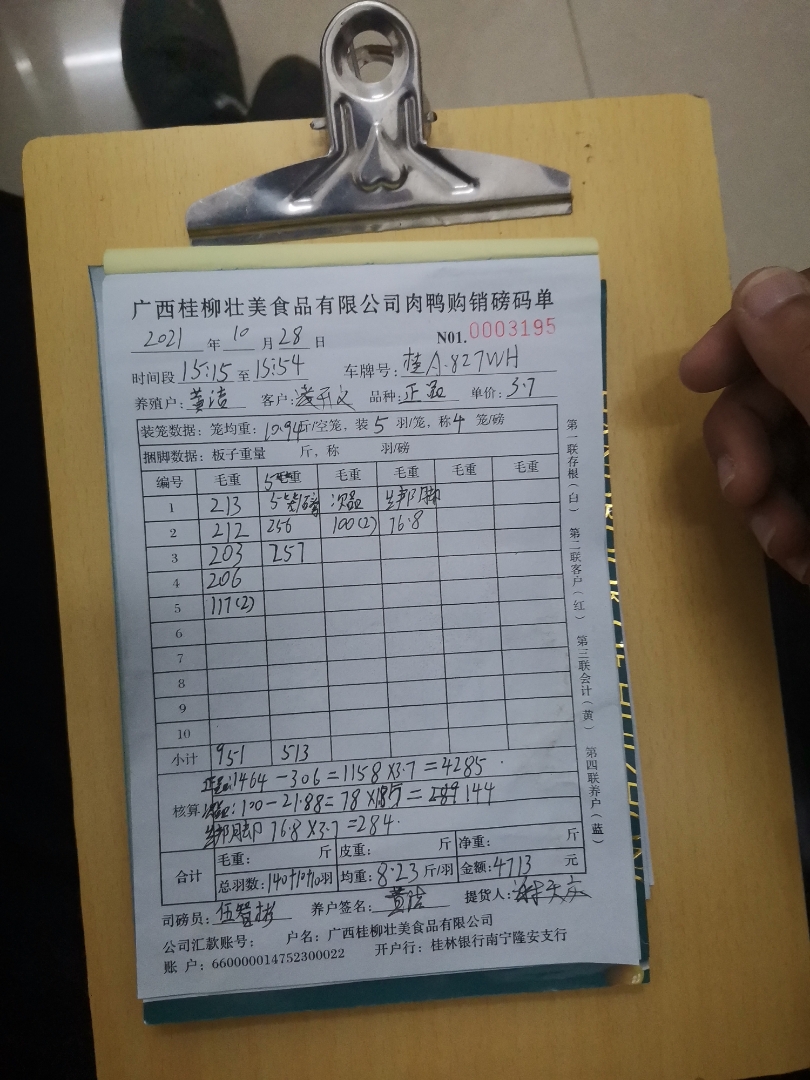 广西桂柳壮美食品有限公司肉鸭购销磅码单
2021 年 10 月 28 日 N01. 0003195
时间段 15:15 至 15:54 车牌号: 桂A·827WH
养殖户: 黄洁 客户: 品种: 正品 单价: 3.7
装笼数据: 笼均重: 10.94 斤/空笼, 装 5 羽/笼, 称 4 笼/磅
捆脚数据: 板子重量 斤, 称 羽/磅
编号 毛重 5毛重 毛重 毛重 毛重 毛重
1 213 5笼/磅 次品 绑脚
2 212 256 100(2) 76.8
3 203 257
4 206
5 117(2)
6
7
8
9
10
小计 951 513
核算
正品: 1464 - 306 = 1158 × 3.7 = 4285
次品: 100 - 21.88 = 78 × = 144
绑脚 76.8 × 3.7 = 284.
合计 毛重: 斤 皮重: 斤 净重: 斤
总羽数: 140+10+10 羽 均重: 8.23 斤/羽 金额: 4713 元
司磅员: 伍智彬 养户签名: 黄洁 提货人:
公司汇款账号: 户名: 广西桂柳壮美食品有限公司
账 户: 660000014752300022 开户行: 桂林银行南宁隆安支行
第一联存根(白) 第二联客户(红) 第三联会计(黄) 第四联养户(蓝)